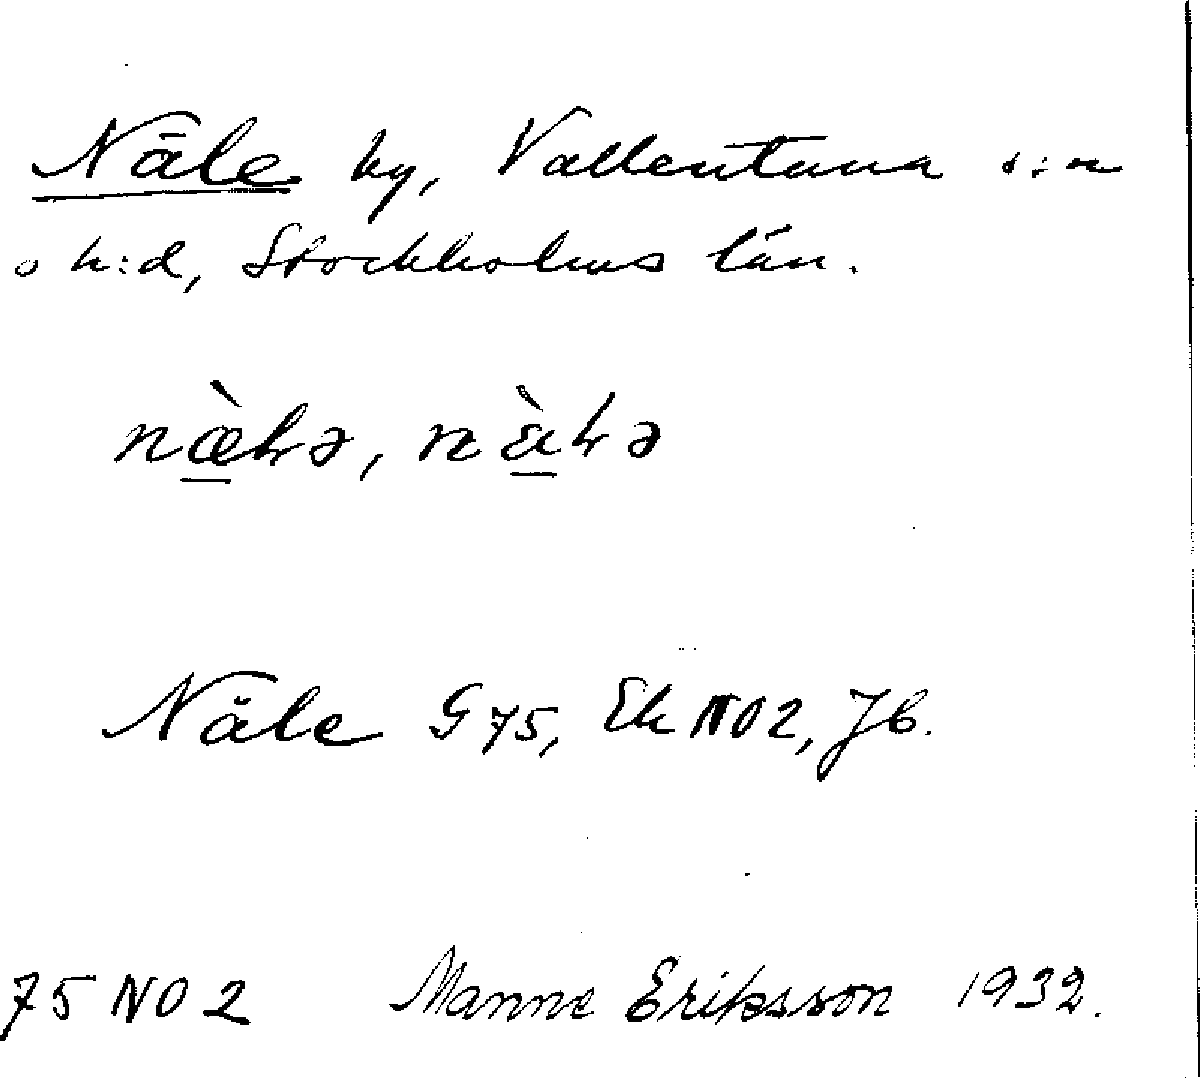 Näle by, Vallentuna s:n
o h:d, Stockholms län.
Näle G 75, Ek NO 2, Jb.
75 NO 2 Manne Eriksson 1932.